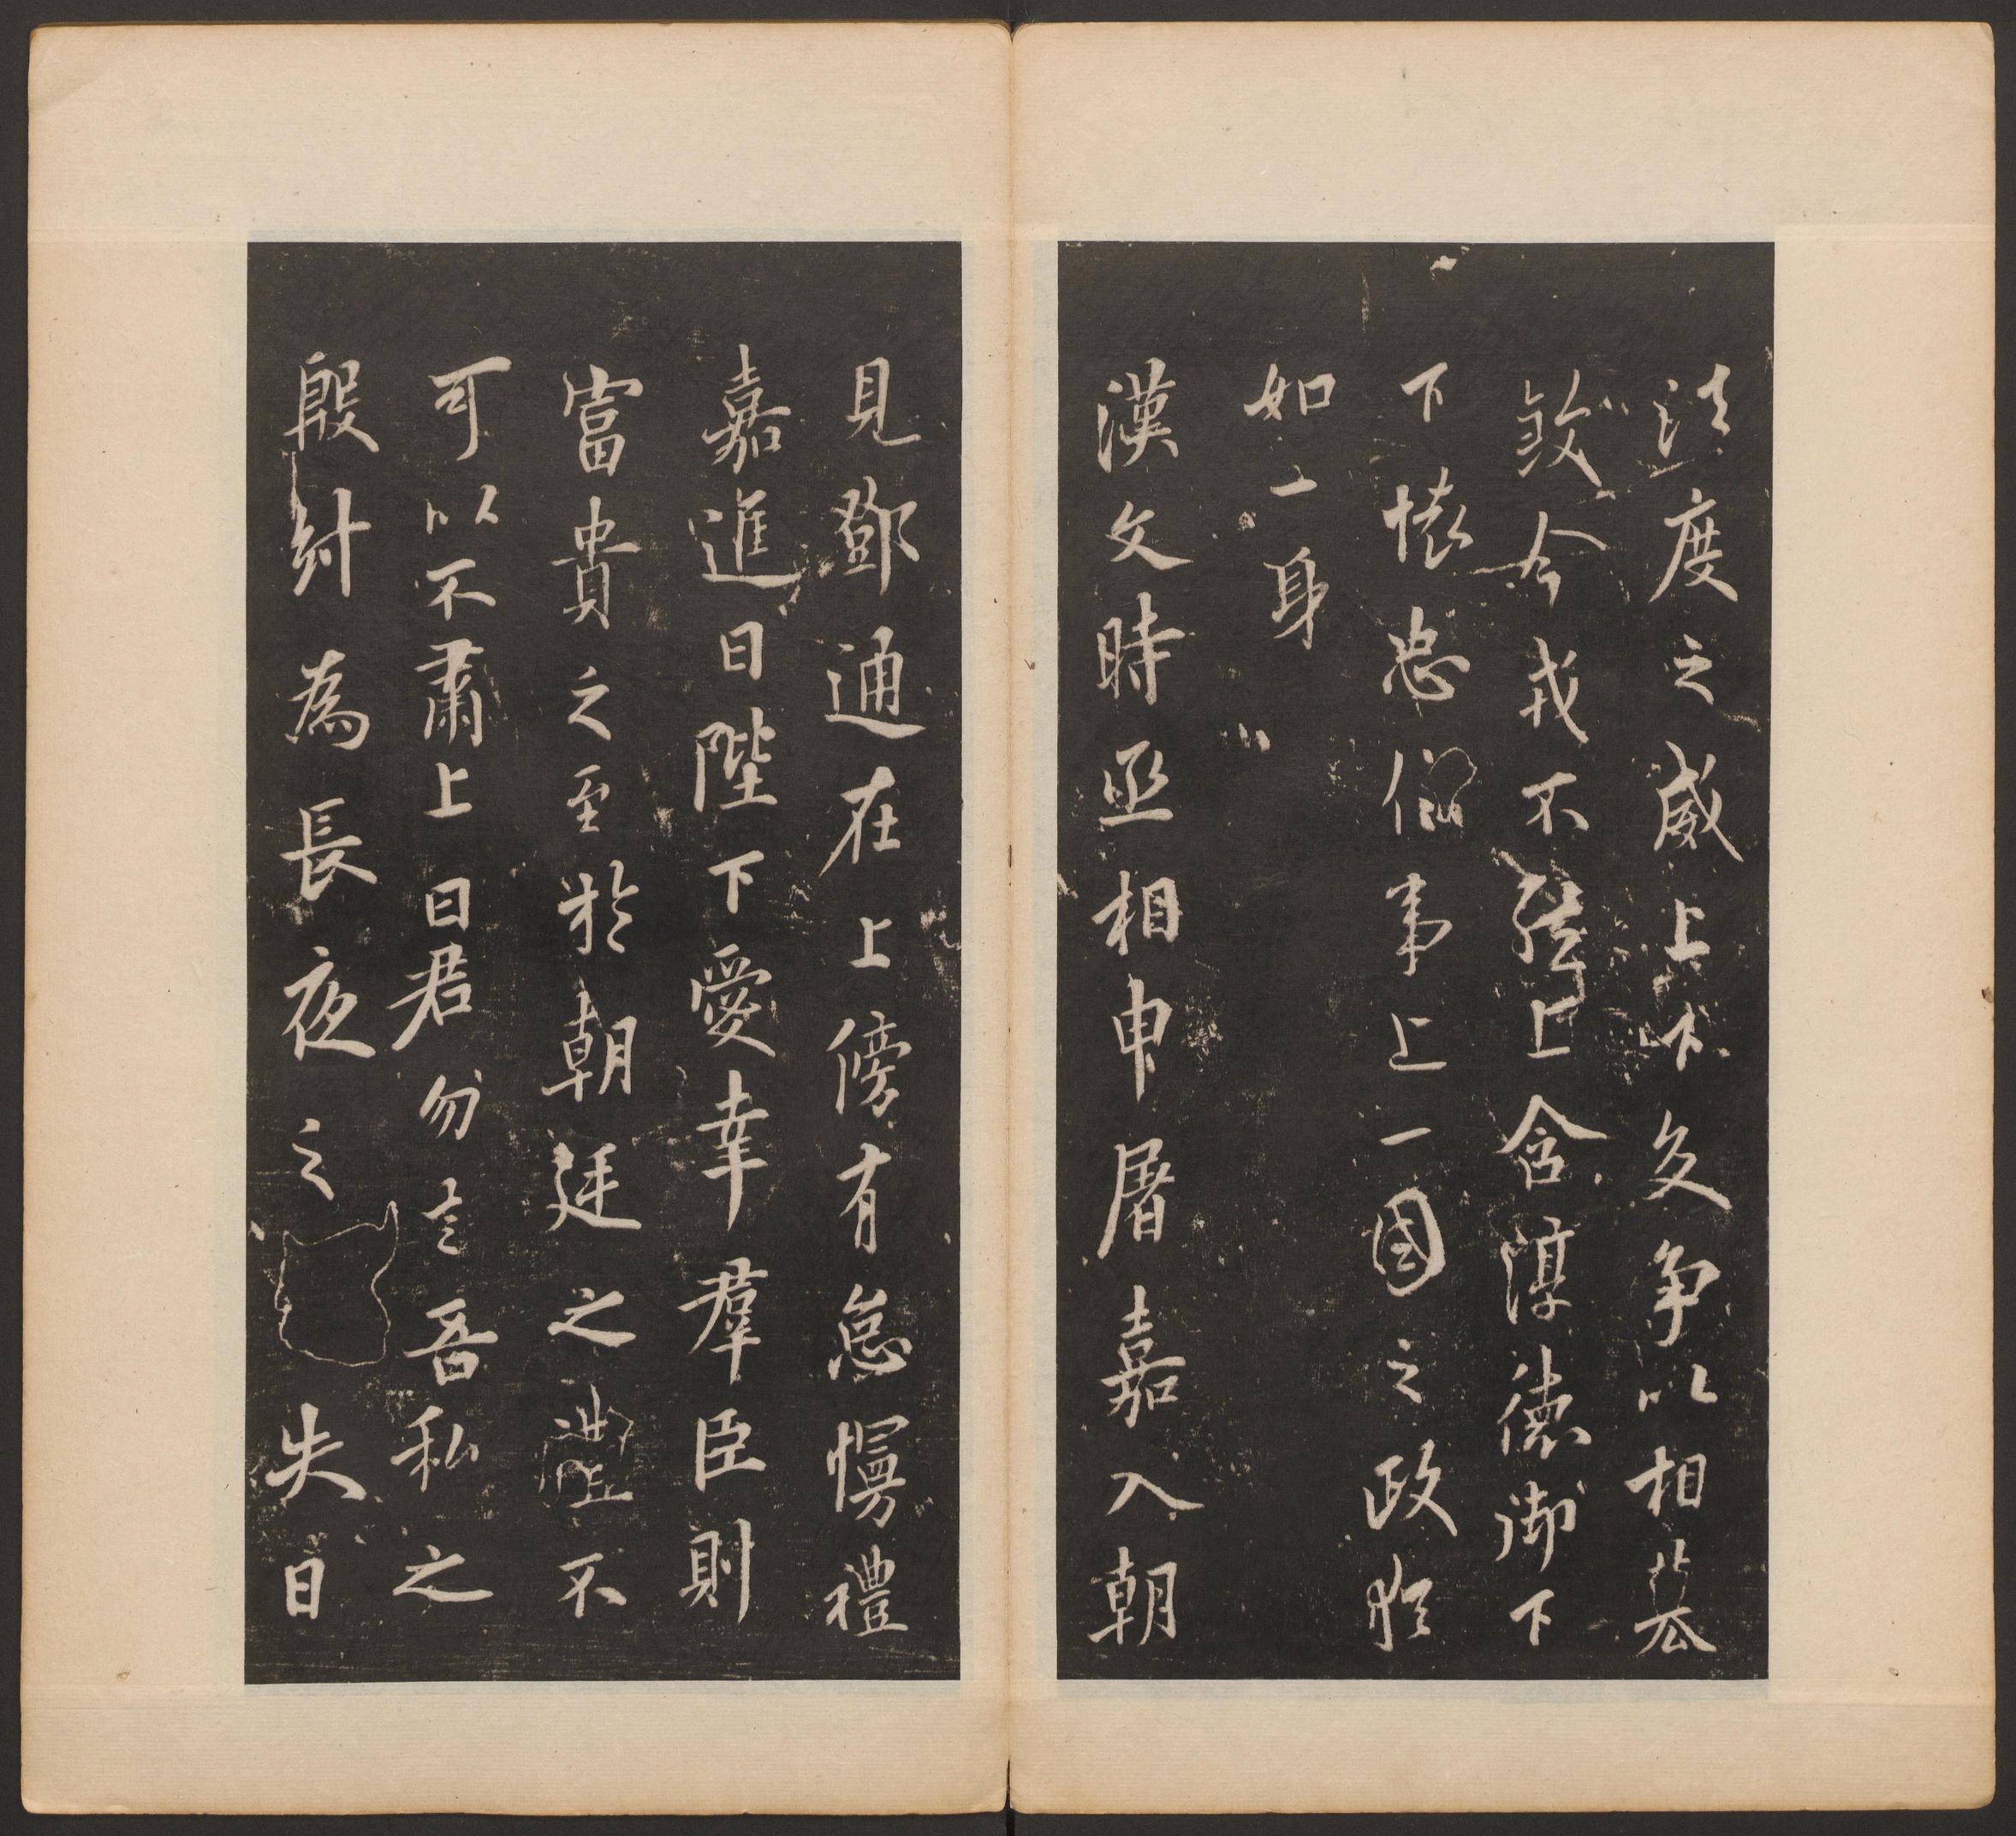 法度之威上下交争以相篡
今戎不然上含淳德御下
下懷忠信事上一國之政猶
如一身
漢文時丞相申屠嘉入朝
見鄧通在上傍有怠慢禮
嘉進曰陛下愛幸羣臣則
富貴之至於朝廷之禮不
可以不肅上曰君勿言吾私之
殷紂為長夜之失日